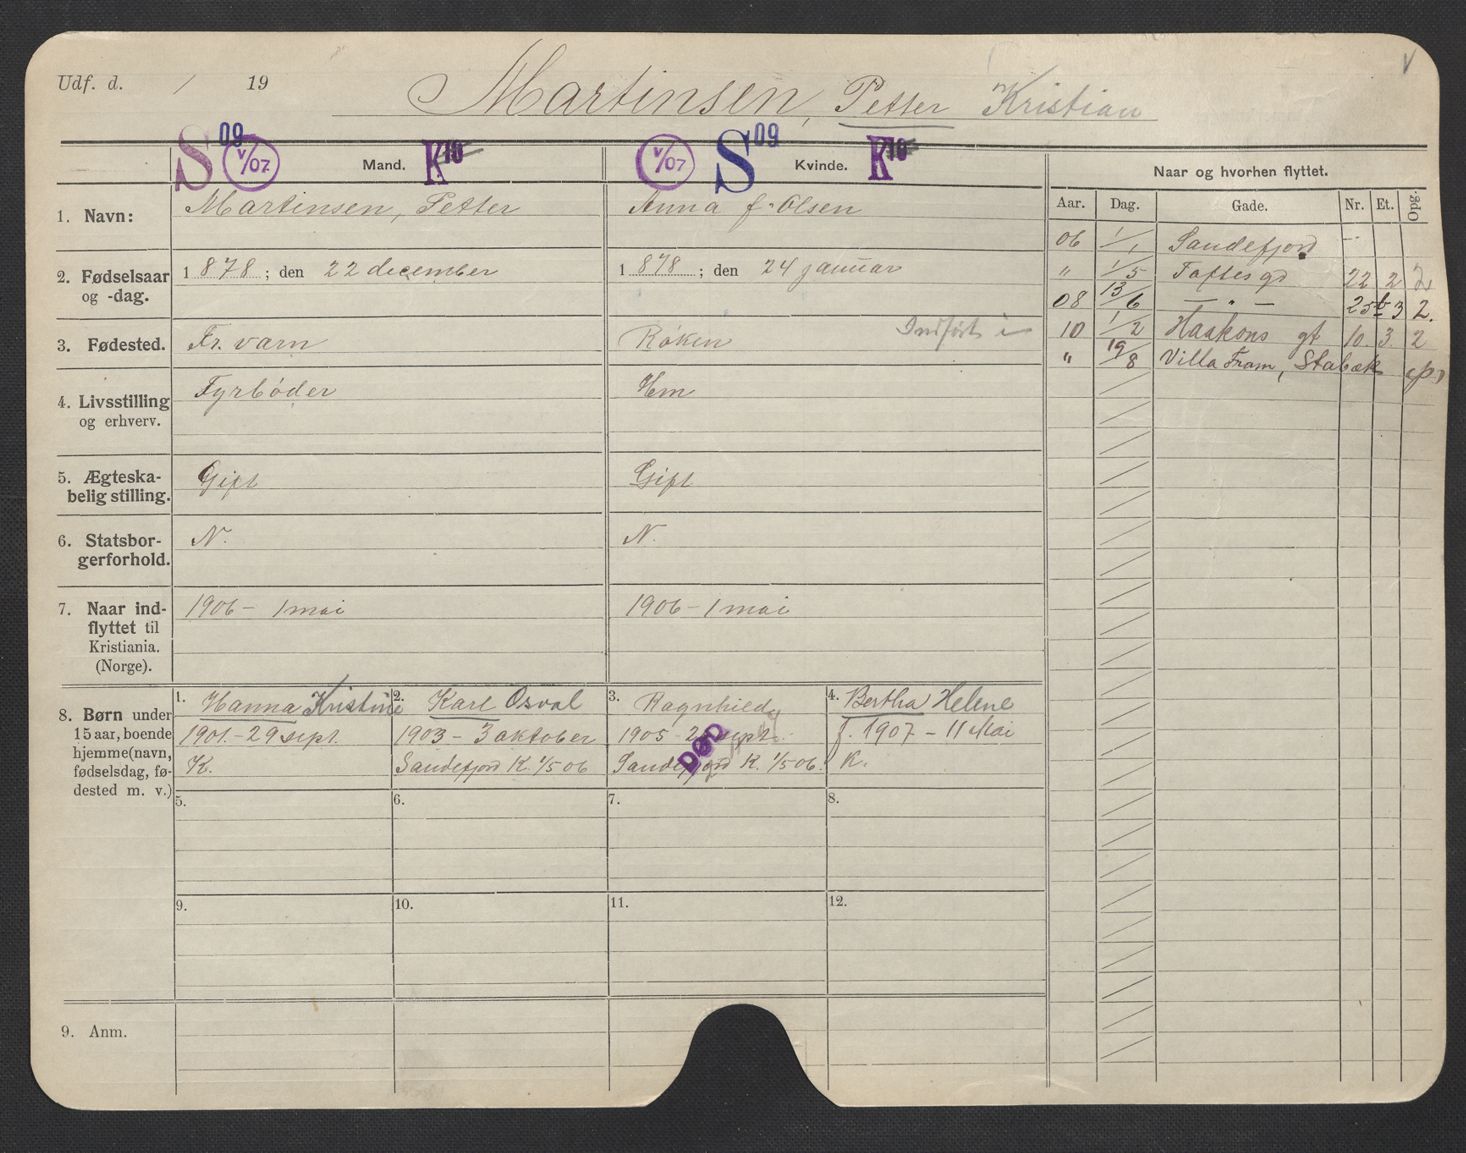 Udf. d. / 19
Martinsen, Petter Kristian
S 09 V/07 Mand. K 10
V/07 S 09 Kvinde. K 10
Naar og hvorhen flyttet.
Aar. Dag. Gade. Nr. Et. Opg.
1. Navn: Martinsen, Petter
Anna f. Olsen
06 1/1 Sandefjord
2. Fødselsaar og -dag.
1878; den 22 december
1878; den 24 januar
" 1/5 Toftes gd 22 2
08 13/6 — " — 25b 3 2.
3. Fødested. Fr. varn
Røken
Indført i
10 1/2 Haakons gt 10. 3. 2
" 19/8 Villa Fram, Stabæk
4. Livsstilling og erhverv.
Fyrbøder
Hm
5. Ægteska-
belig stilling.
Gift
Gift
6. Statsbor-
gerforhold.
N.
N.
7. Naar ind-
flyttet til
Kristiania.
(Norge).
1906 - 1 mai
1906 - 1 mai
8. Børn under
15 aar, boende
hjemme (navn,
fødselsdag, fø-
dested m. v.)
1. Hanna Kristine
1901 - 29 sept.
K.
2. Karl Osval
1903 - 3 oktober
Sandefjord K. 1/5 06
3. Ragnhild
1905 - sept.
Sandefjord K. 1/5 06.
DØD
4. Bertha Helene
f. 1907 - 11 Mai
K.
5. 6. 7. 8.
9. 10. 11. 12.
9. Anm.